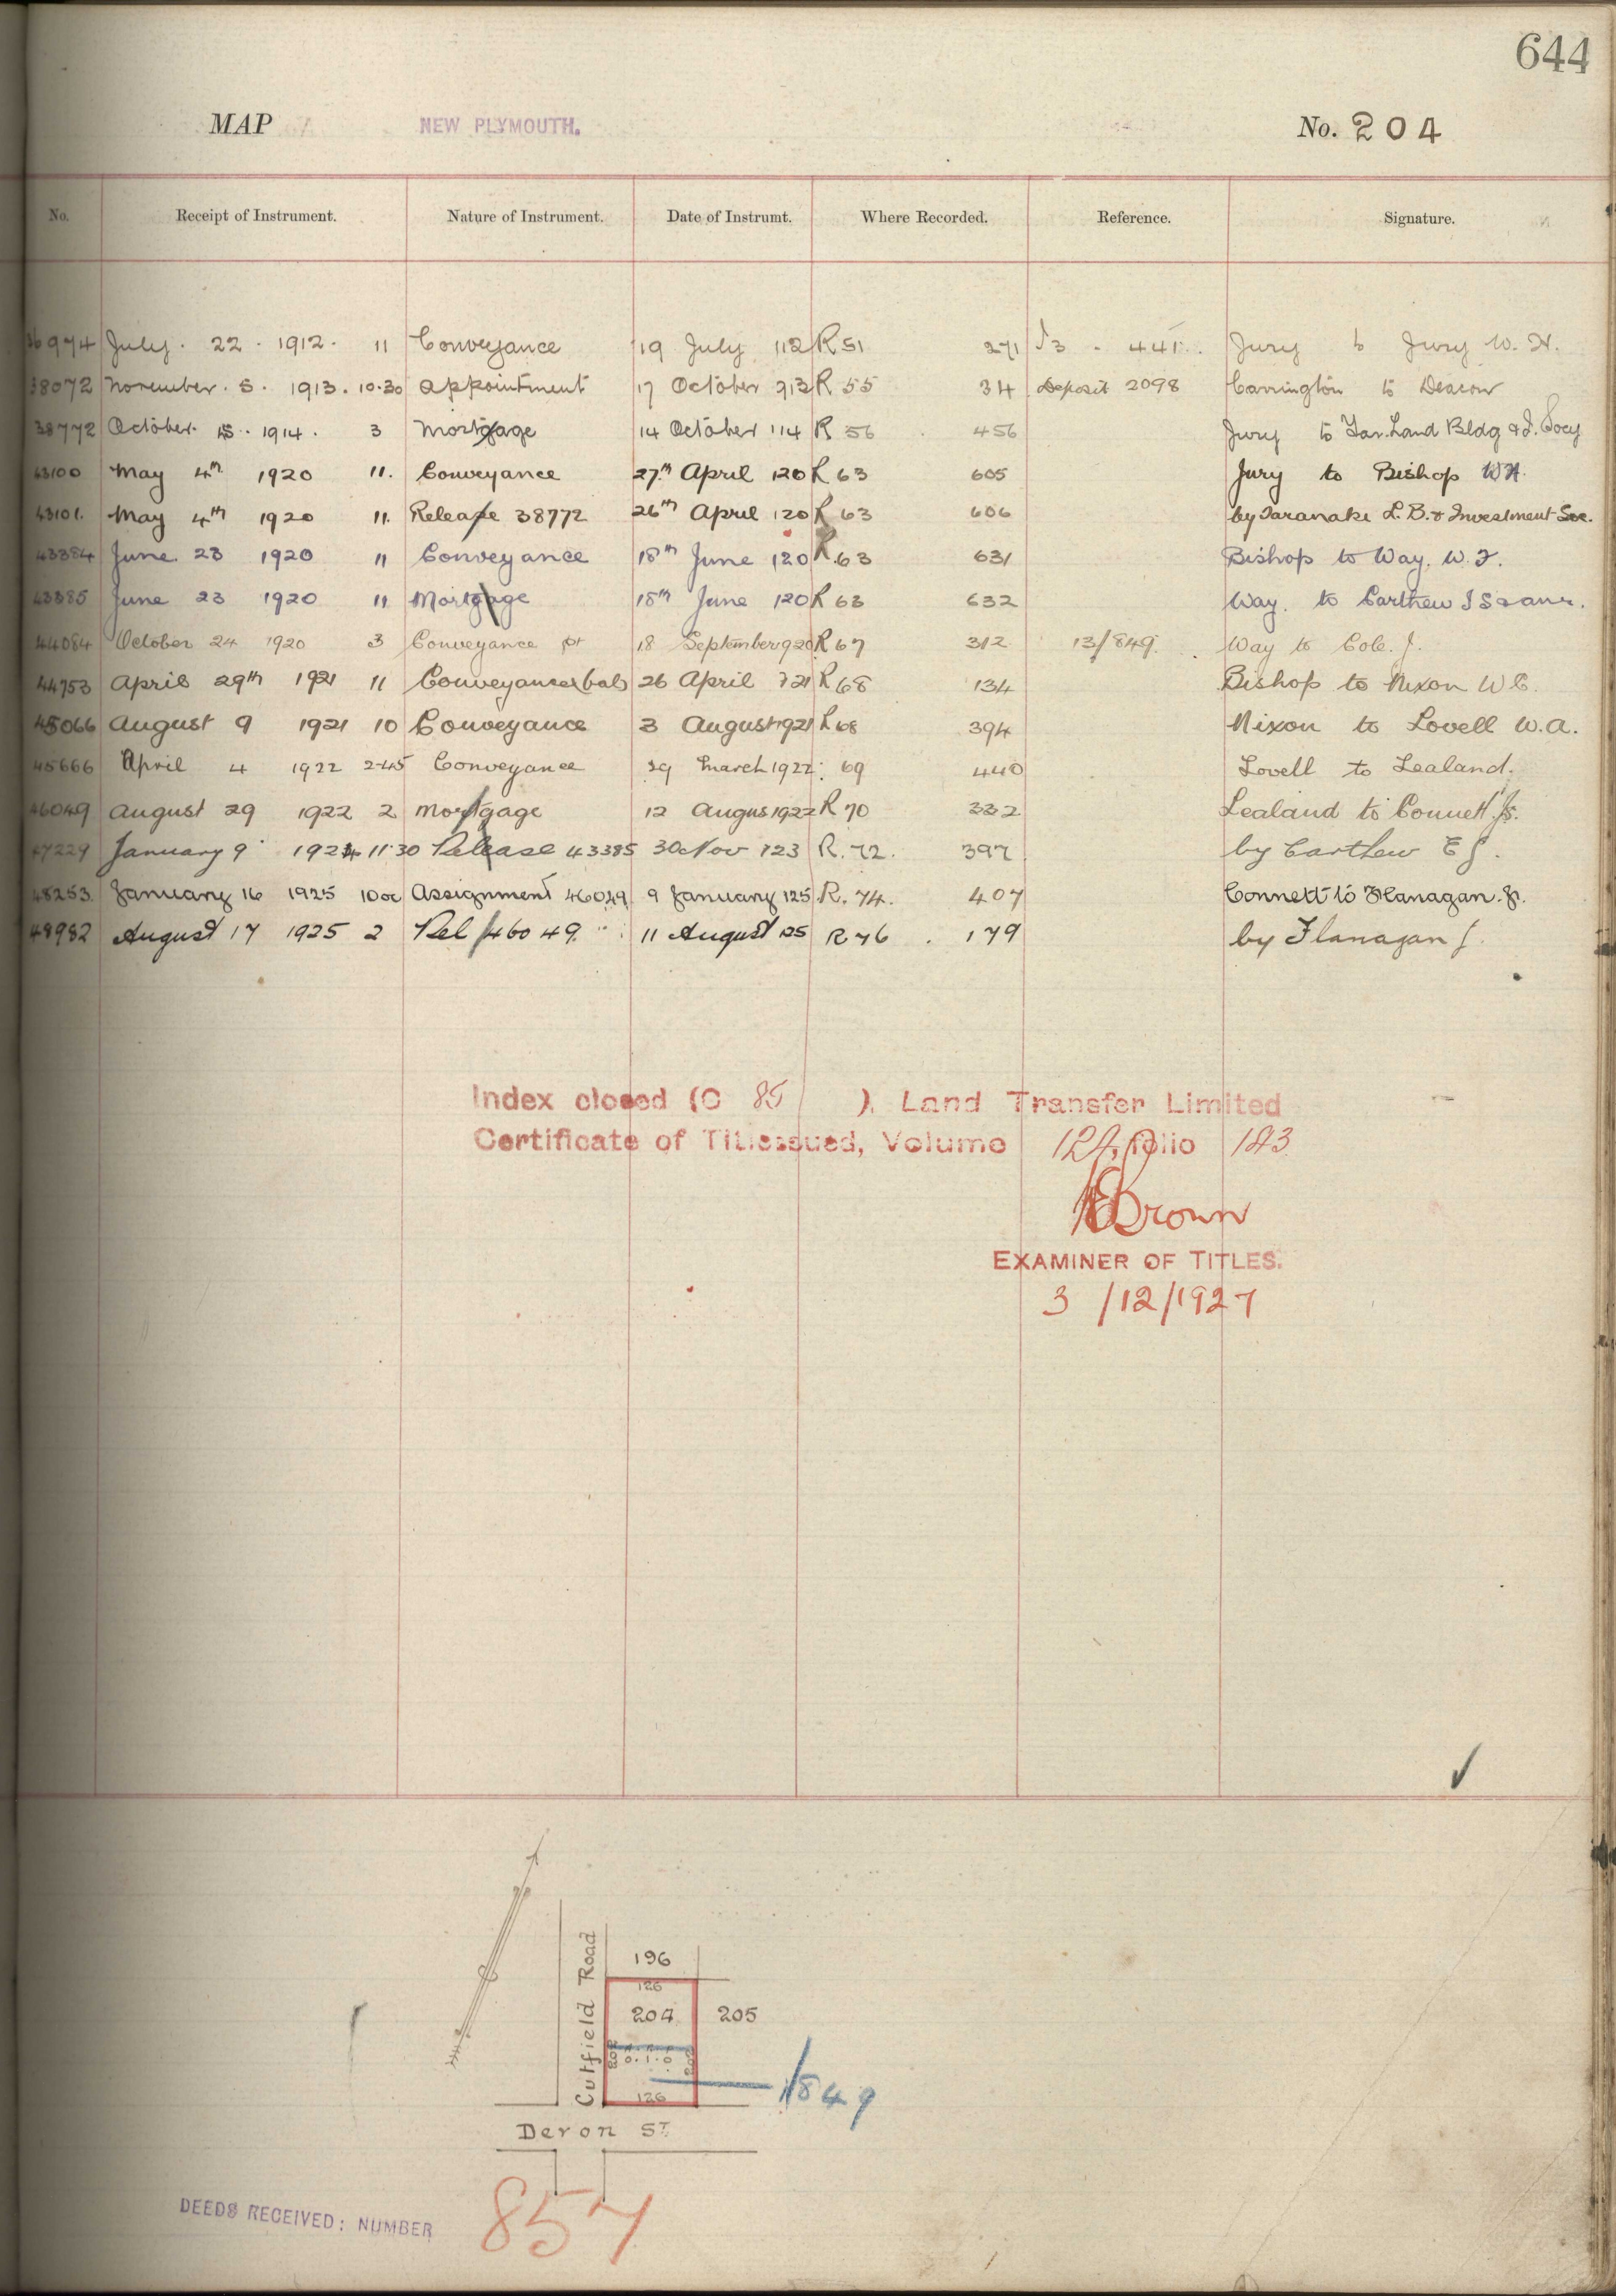 644
MAP NEW PLYMOUTH. No. 204
No. Receipt of Instrument. Nature of Instrument. Date of Instrumt. Where Recorded. Reference. Signature.
974 July. 22. 1912. 11 Conveyance 19 July '12 R 51 271 441 Jury to Jury W. H.
38072 November. 5. 1913. 10.30 Appointment 17 October 913 R 55 34 Deposit 2098 Carrington to Deacon
38772 October. 15. 1914. 3 Mortgage 14 October '14 R 56 456 Jury to Tar. Land Bldg & I. Socy
43100 May 4th 1920 11. Conveyance 27th April '20 R 63 605 Jury to Bishop W H.
43101. May 4th 1920 11. Release 38772 26th April '20 R 63 606 by Taranaki L. B. & Investment Soc.
43384 June 23 1920 11 Conveyance 18th June '20 R. 63 631 Bishop to Way. W. J.
43385 June 23 1920 11 Mortgage 18th June '20 R 63 632 Way. to Carthew
44084 October 24 1920 3 Conveyance pt 18 September 920 R 67 312 13/849. Way to Cole. J.
44753 April 29th 1921 11 Conveyance (bal) 26 April '21 R 68 134 Bishop to Nixon W C.
45066 August 9 1921 10 Conveyance 3 August 1921 R 68 394 Nixon to Lovell W. A.
45666 April 4 1922 2.45 Conveyance 29 March 1922. 69 440 Lovell to Lealand.
46049 August 29 1922 2 Mortgage 12 Augus 1922 R 70 332 Lealand to Connett. Js.
47229 January 9 1924 11.30 Release 43385 30 Nov '23 R. 72. 397 by Carthew E J.
48253. January 16 1925 Assignment 46049 9 January '25 R. 74. 407 Connett to Flanagan. J.
48982 August 17 1925 2 Rel 46049. 11 August '25 R 76. 179 by Flanagan J.
Index closed (C 85 ). Land Transfer Limited
Certificate of Title issued, Volume 124, folio 183
Brown
EXAMINER OF TITLES.
3 /12/1927
196
126
204 205
Cutfield Road
0. 1. 0
126
849
Devon St.
DEEDS RECEIVED: NUMBER 857